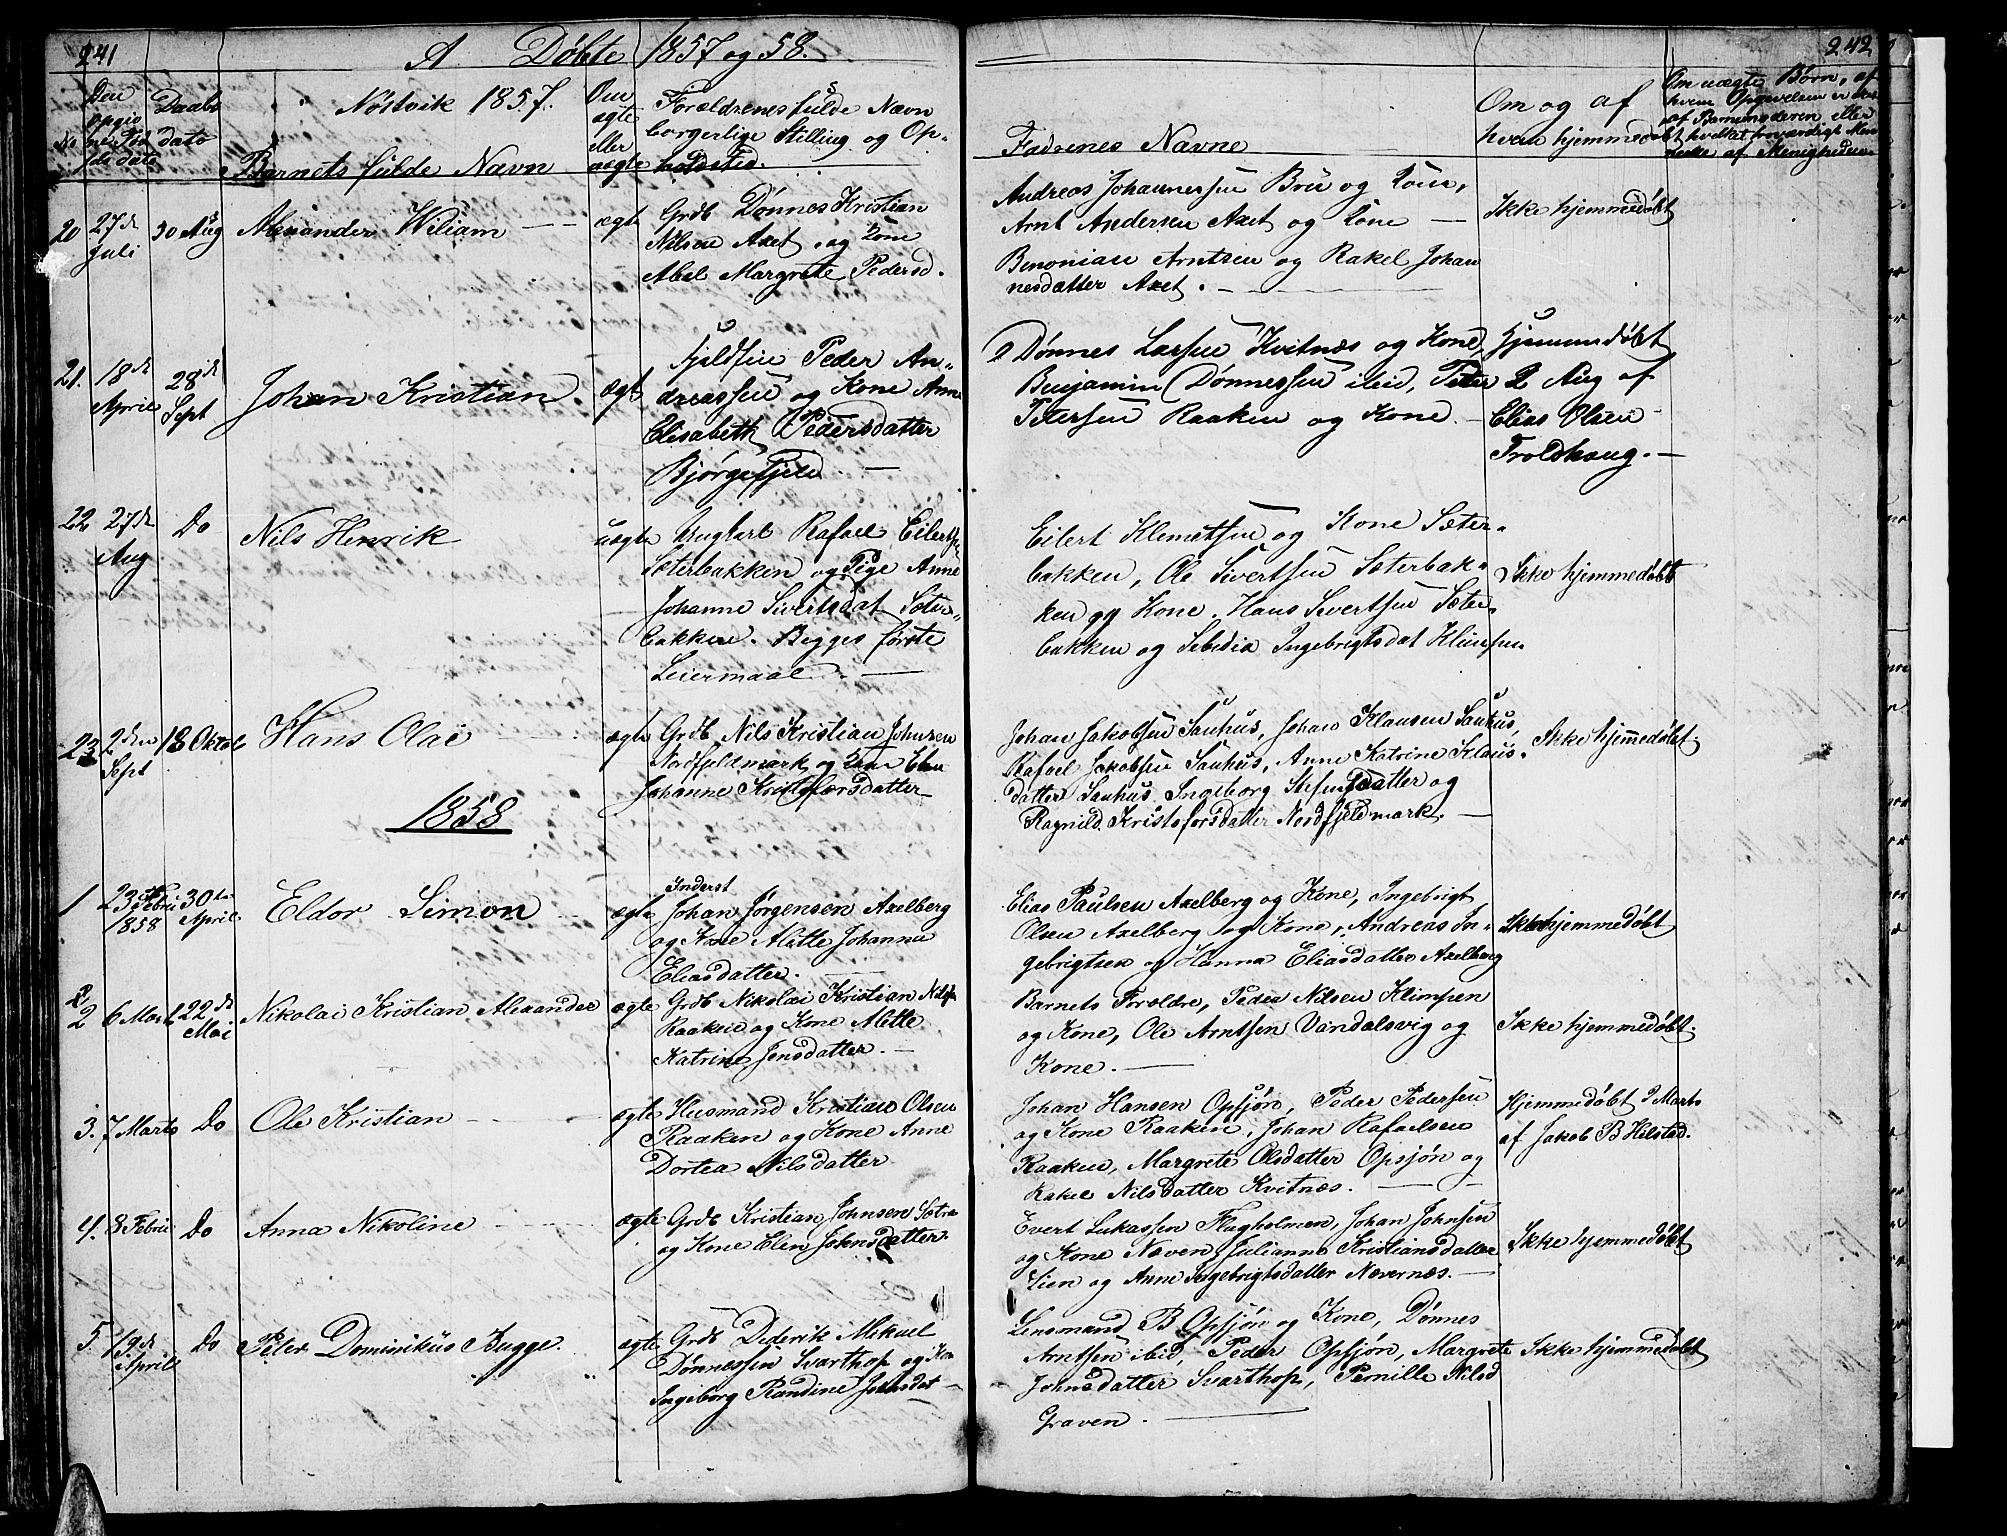 241
A Døbte 1857 og 58.
242
No
Den
opgiv
ne Fød
sels dato
Daabs
dato
Nøstvik 1857.
Barnets fulde Navn
Om
ægte
eller
uægte
Forældrenes fulde Navn
borgerlige Stilling og Op-
holdsted.
Fadrenes Navne
Om og af
hvem hjemmedøbt
Om uægte Børn, af
hvem Opgivelsen er
af Barnemoderen eller
hvilket troværdigt Men
neske af Menigheden
20
27de
Juli
30 Aug
Alexander Wiliam
ægte
Grdb Dønnes Kristian
Nilsen Axet og Kone
Abel Margrete Pedersd.
Andreas Johannessen Bru og Kone,
Arnt Andersen Axet og Kone
Benonian Arntsen og Rakel Johan
nesdatter Axet.
Ikke hjemmedøbt
21.
18de
April
28de
Sept
Johan Kristian
ægte
Fjeldfin Peder An-
dreassen og Kone Anne
Elisabeth Pedersdatter
Bjørgefjeld
Dønnes Larsen Kvitnæs og Kone,
Benjamin Dønnessen ibid, Peter
Petersen Raaken og Kone.
Hjemmedøbt
2 Aug af
Elias Olsen
Troldhaug.
22
27de
Aug
Do
Nils Henrik
uægte
Ungkarl Rafael Eilertsen
Sæterbakken og Pige Anne
Johanne Sivertsdat Sæter-
bakken. Begges første
Leiermaal
Eilert Klemetsen og Kone Sæter-
bakken, Ole Sivertsen Sæterbak-
ken og Kone. Hans Sivertsen Sæter
bakken og Sebedia Ingebrigtsdat Klimpen
Ikke hjemmedøbt
23
2den
Sept
18 Oktob
Hans Olai
ægte
Grdb Nils Kristian Johnsen
Nordfjeldmark og Kone Elen
Johanne Kristofersdatter
Johan Jakobsen Sauhus, Johan Klausen Sauhus,
Rafael Jakobsen Sauhus, Anne Katrine Klaus-
datter Sauhus Ingeborg Stefensdatter og
Ragnild Kristofersdatter Nordfjeldmark.
Ikke hjemmedøbt.
1858
1
23 Febru
1858
30te
April
Eldor Simon
ægte
Inderst
Johan Jørgensen Axelberg
og Kone Alette Johanna
Eliasdatter.
Elias Paulsen Axelberg og Kone, Ingebrigt
Olsen Axelberg og Kone, Andreas In-
gebrigtsen og Hanna Eliasdatter Axelberg
Ikke hjemmedøbt
2
6 Mart
22de
Mai
Nikolai Kristian Alexander
ægte
Grdb Nikolai Kristian Nilsen
Raaken og Kone Alette
Katrine Jensdatter.
Barnets Forældre, Peder Nilsen Klimpen
og Kone, Ole Arntsen Vandalsvig og
Kone.
Ikke hjemmedøbt.
3.
7 Marts
Do
Ole Kristian
ægte
Husmand Kristian Olsen
Raaken og Kone Anne
Dortea Nilsdatter
Johan Hansen Opsjøn, Peder Pedersen
og Kone Raaken, Johan Rafaelsen
Raaken, Margrete Olsdatter Opsjøn og
Rakel Nilsdatter Kvitnæs.
Hjemmedøbt 9 Marts
af Jakob B Hilstad.
4.
8 Febru
Do
Anna Nikoline
ægte
Grdb Kristian Johnsen Sætra
og Kone Elen Johnsdatter
Evert Lukassen Flagholmen, Johan Johnsen
og Kone Næven, Julianna Kristiansdatter
Lien og Anne Ingebrigtsdatter Nævernæs.
Ikke hjemmedøbt
5
19de
April
Do
Peter Dominikus Bugge.
ægte
Grdb Dederik Mekael
Dønnessen Svarthop og Kone
Ingeborg Randine Johnsdat
Lensmand B Opsjøn og Kone, Dønnes
Arntsen ibid, Peder Opsjøn, Margrete
Johnsdatter Svarthop, Pernille Nilsd
Graven.
Ikke hjemmedøbt